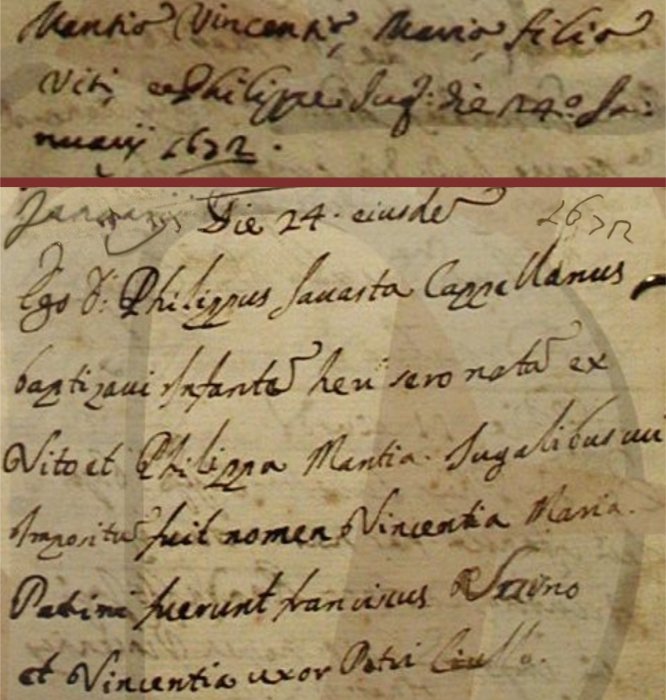 Mantia Vincentia Maria filia
Viti et Philippe Jug: die 24° Ja:
nuarij 1672.
Januarij Die 24. eiusde 1672
Ego D: Philippus Savasta Cappellanus
baptizavi Infante heri sero nata ex
Vito et Philippa Mantia Jugalibus cui
Impositu fuit nomen Vincentia Maria.
Patrini fuerunt franciscus
et Vincentia uxor Petri Ciulla.